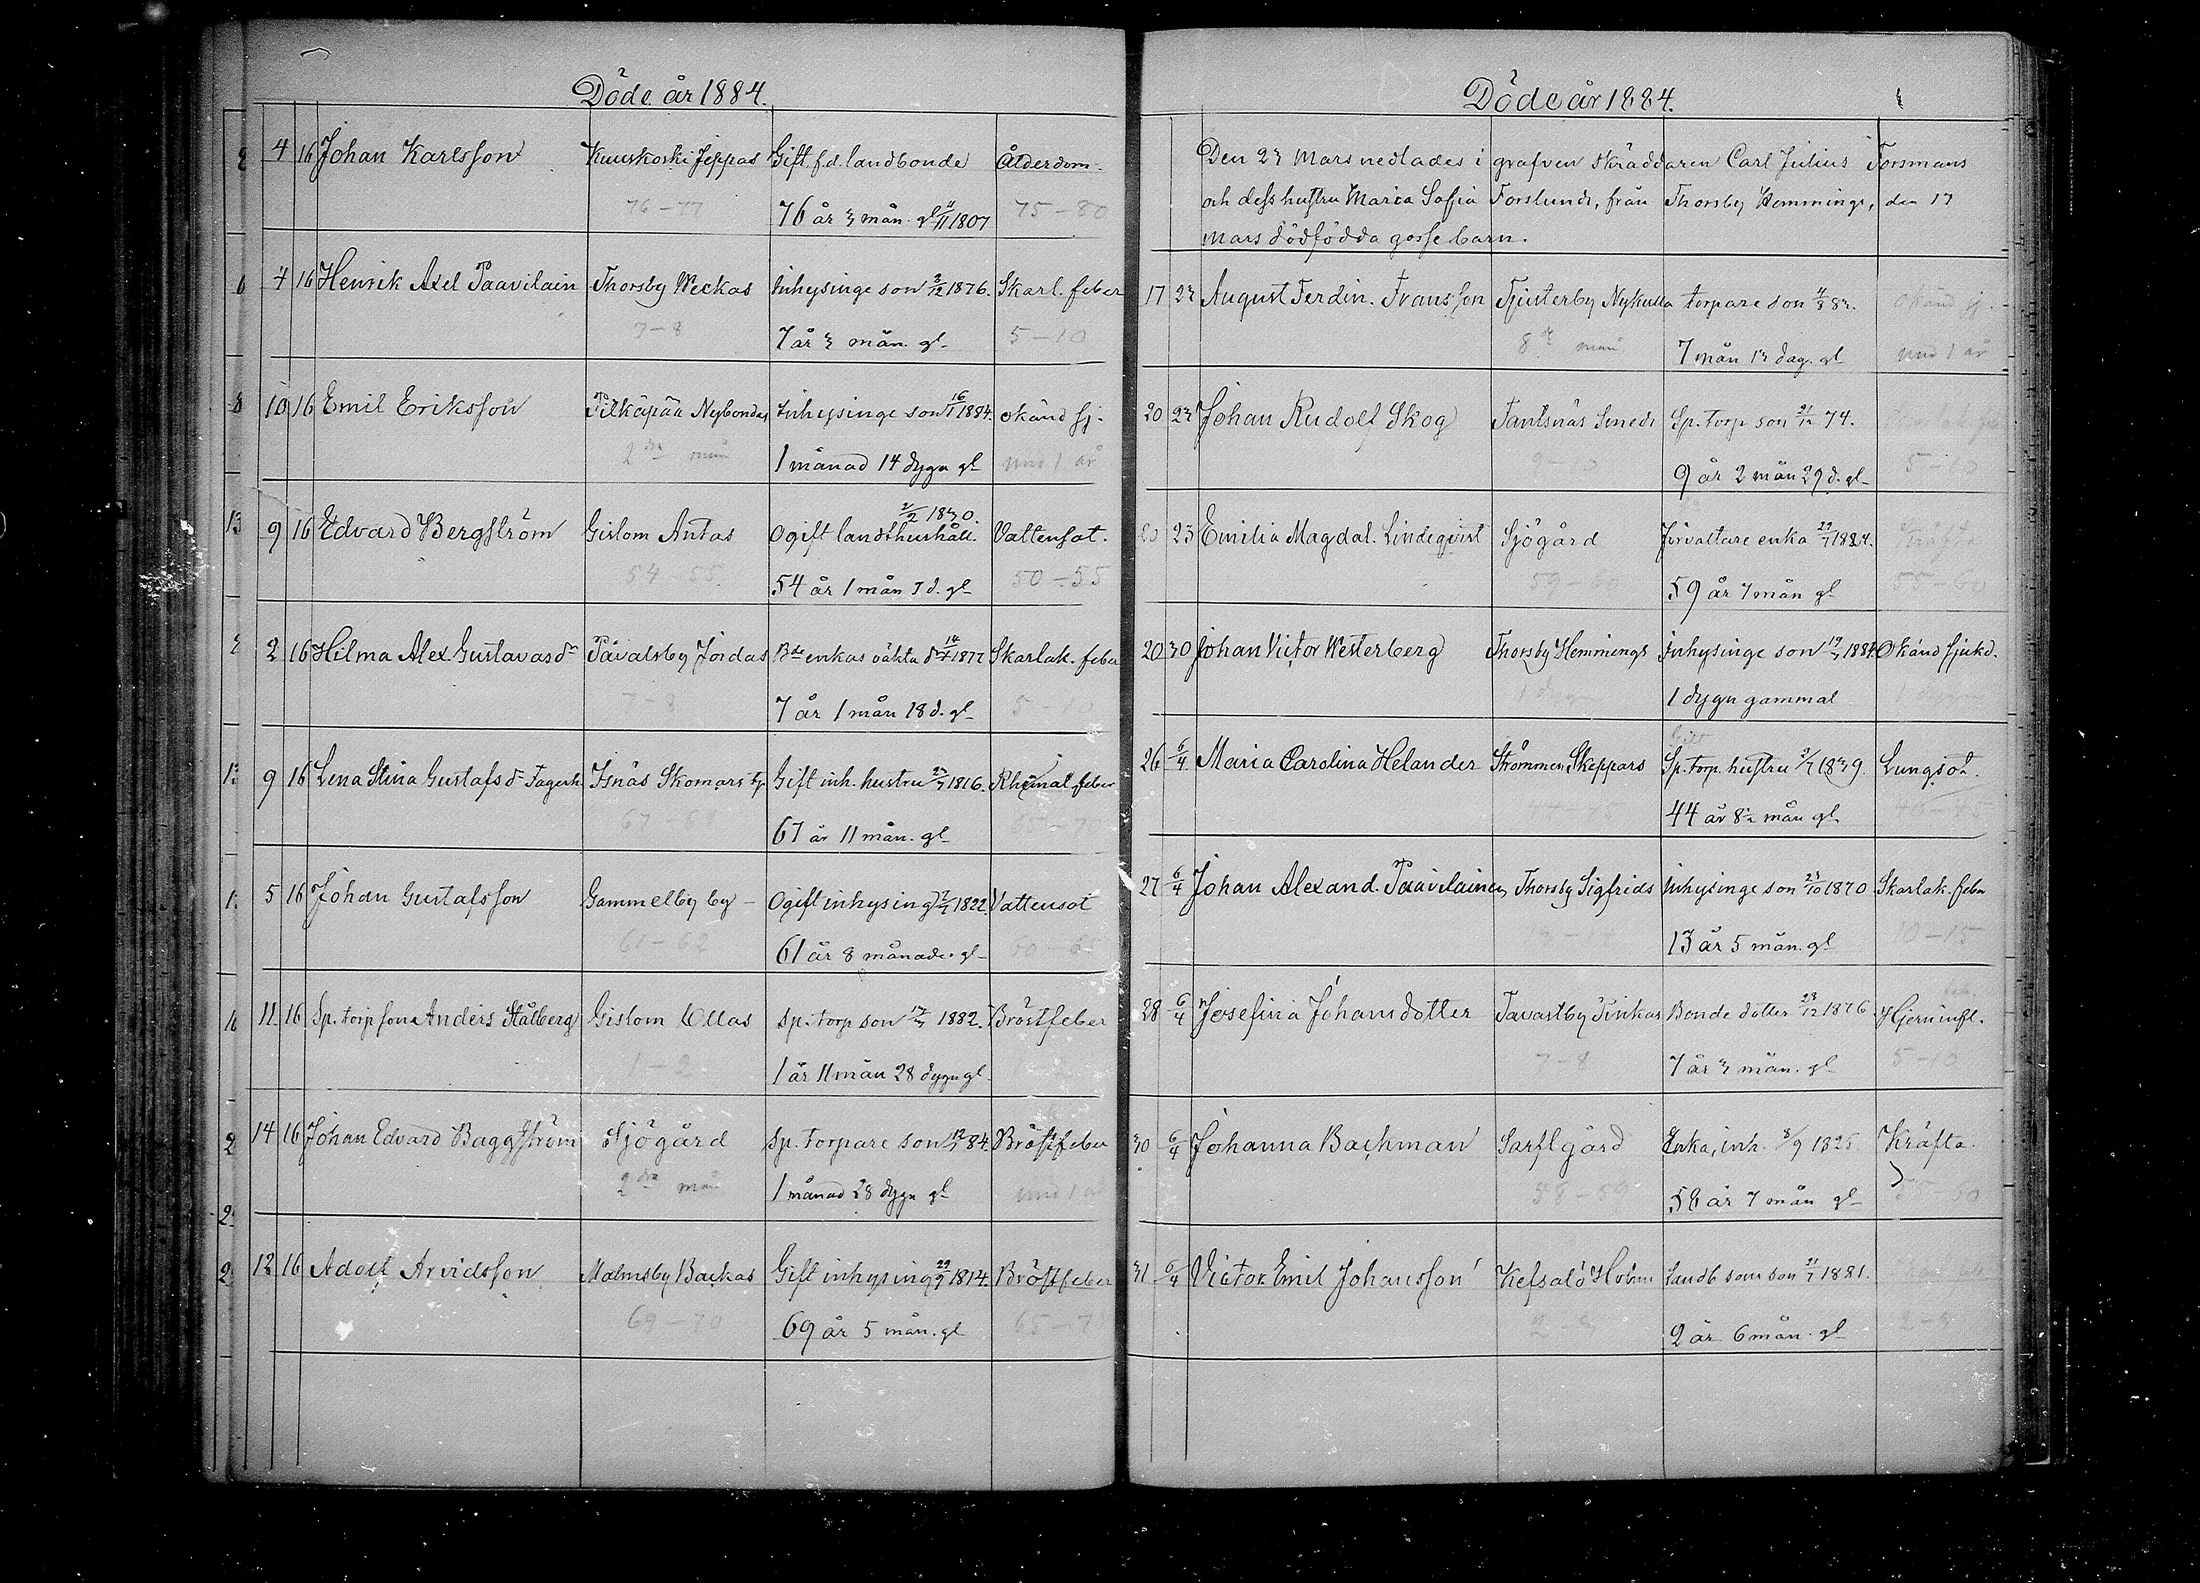 Döde år 1884.
4 16 Johan Karlsson Kuuskoski Jeppas Gift f.d. landbonde Ålderdom.
76-77 76 år 3 mån. gl 5/11 1807 75-80
4 16 Henrik Axel Paavilain Thorsby Weckas Inhysinge son 2/12 1876. Skarl. feber
7-8 7 år 3 mån. gl. 5-10
10 16 Emil Eriksson Pilkäpää Nybondas Inhysinge son 16/1 1884. okänd sj.
2dra mån 1 månad 14 dygn gl und 1 år
2/2 1830.
9 16 Edvard Bergström Gislom Antas Ogift landthushåll. Vattensot.
54-55. 54 år 1 mån 7 d. gl 50-55
2 16 Hilma Alex. Gustavasdr Påvalsby Jordas Bde enkas oäkta d 14/1 1877 Skarlak. feber
7-8 7 år 1 mån 18 d. gl 5-
9 16 Lena Stina Gustafsdr Fagerh. Isnäs Skomars tp. Gift inh. hustru 23/3 1816. Rhevmat. feber
67-68 67 år 11 mån. gl
5 16 Johan Gustafsson Gammelby by Ogift inhysing 7/7 1822. Vattensot
61-62 61 år 8 månader gl 60-65
11 16 Sp. torp son Anders Stålberg Gislom Ollas sp. torp son 12/3 1882. Bröstfeber
1-2 1 år 11 mån 28 dygn gl
14 16 Johan Edvard Baggström Sjögård Sp. torpare son 12/1 84. Bröstfeber
2dra mån 1 månad 28 dygn gl und 1 år
12 16 Adolf Arvidsson Malmsby Backas Gift inhysing 29/9 1814. Bröstfeber
69-70 69 år 5 mån. gl 65-7
Döde år 1884.
Den 23 Mars nedlades i grafven skräddaren Carl Julius Forsmans
och dess hustru Maria Sofia Forslunds, från Thorsby Hemmings, den 17
Mars dödfödda gossebarn.
17 23 August Ferdin. Fransson Tjusterby Nykulla torpare son 4/8 83. okänd sj.
8de mån 7 mån 13 dag. gl und 1 år
20 23 Johan Rudolf Skog Tantsnäs Smeds Sp. torp son 21/12 74.
9 år 2 mån 29 d. gl 5-10
20 23 Emilia Magdal. Lindeqvist Sjögård Förvaltare enka 22/7 1824. Kräfta
59-60 59 år 7 mån gl 55-60
20 30 Johan Victor Westerberg Thorsby Hemmings Inhysinge son 19/3 1884. Okänd sjukd.
1 dygn gammal
Gift
26 6/4 Maria Carolina Helander Strömmen Skeppars Sp. torp. hustru 2/7 1839. Lungsot.
44-45 44 år 8 mån gl. 40-45
27 6/4 Johan Alexand. Paavilainen Thorsby Sigfrids Inhysinge son 23/10 1870 Skarlak. feber
13-14 13 år 5 mån. gl 10-15
28 6/4 Josefina Johansdotter Tavastby Pinkas Bonde dotter 23/12 1876 Hjerninfl.
7-8 7 år 3 mån. gl 5-10
30 6/4 Johanna Bachman Sarflgård Enka, inh. 3/9 1825 Kräfta.
58-59 58 år 7 mån gl 55-60
31 6/4 Victor Emil Johansson Kefsalö Holm landb. sons son 21/9 1881.
2-3 2 år 6 mån. gl 2-3